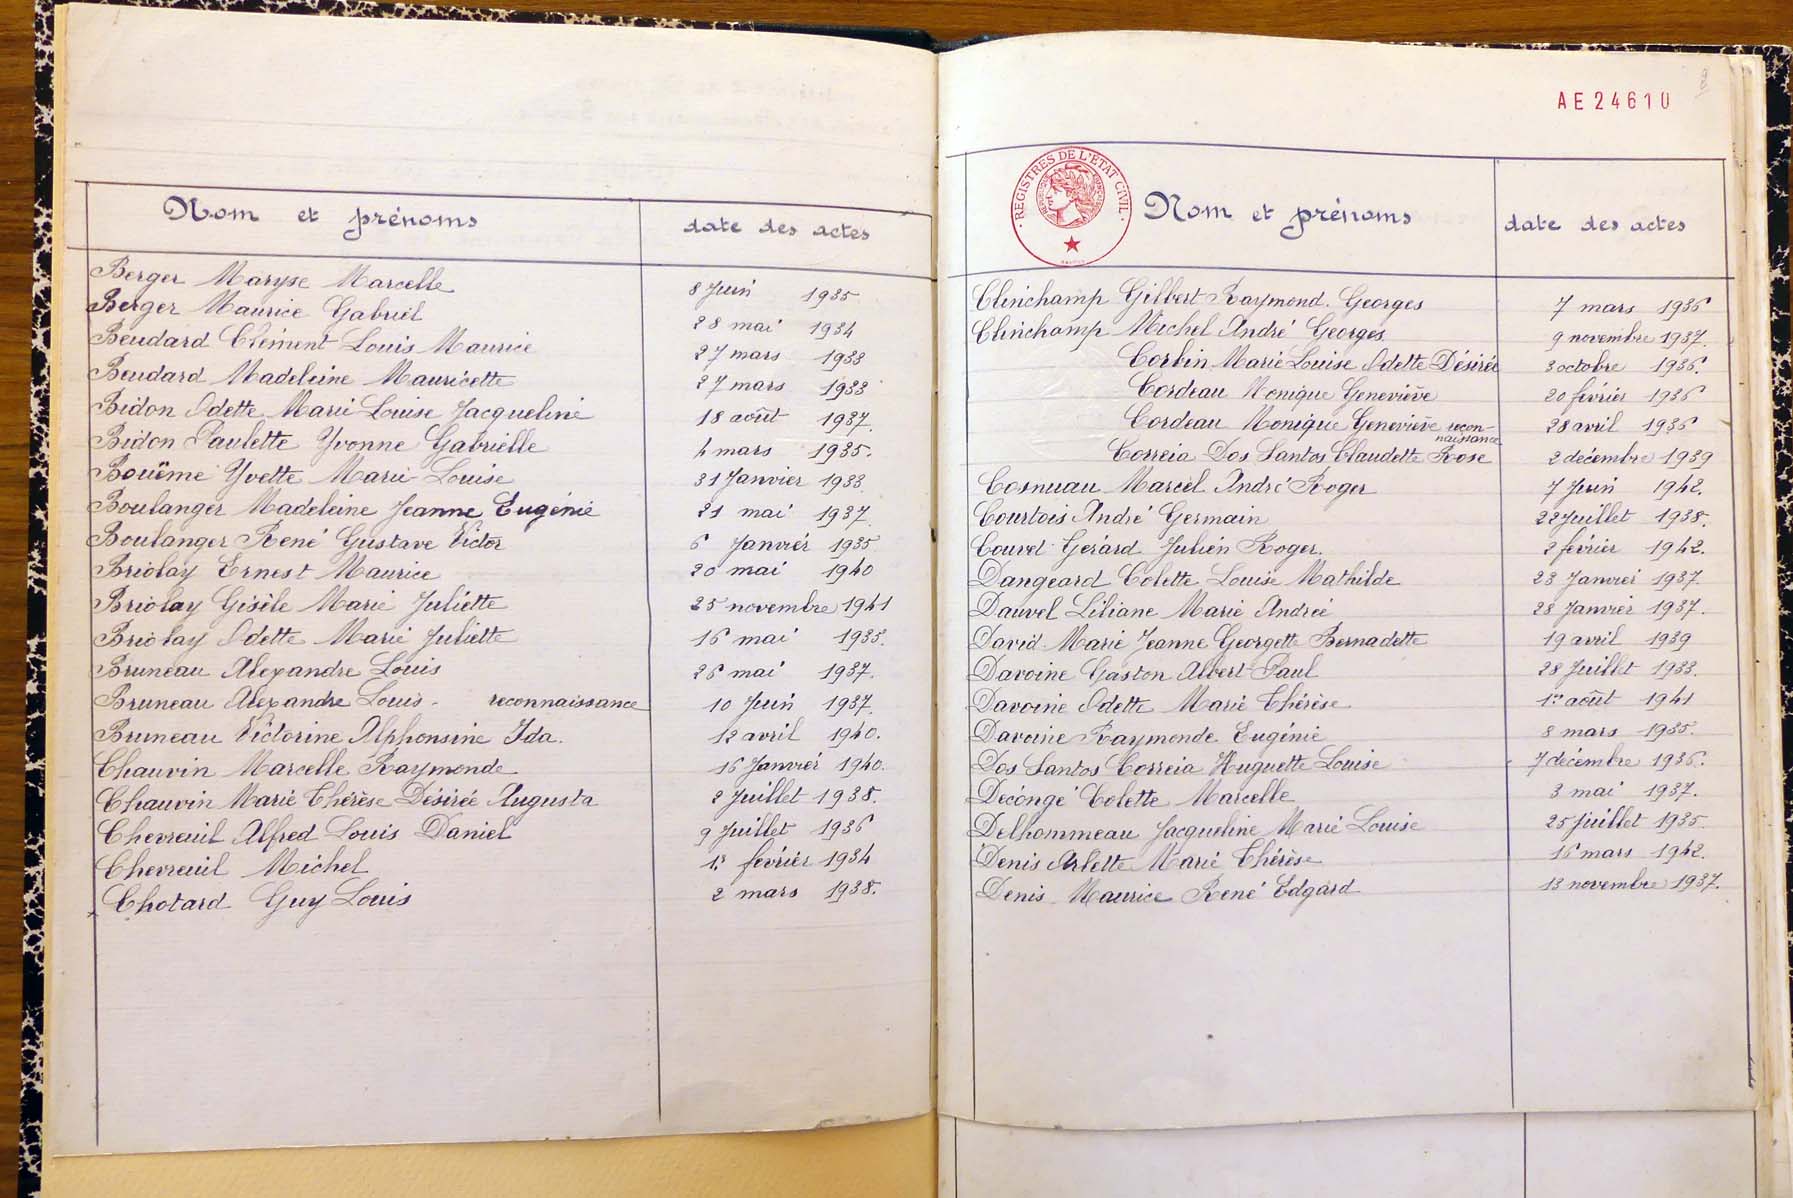 Nom et prénoms date des actes
Berger Maryse Marcelle 8 Juin 1935
Berger Maurice Gabriel 28 mai 1934
Beudard Clément Louis Maurice 27 mars 1933
Beudard Madeleine Mauricette 27 mars 1933
Bidon Odette Marie Louise Jacqueline 18 août 1937.
Bidon Paulette Yvonne Gabrielle 4 mars 1935.
Bouëme Yvette Marie-Louise 31 Janvier 1933.
Boulanger Madeleine Jeanne Eugénie 21 mai 1937.
Boulanger René Gustave Victor 6 Janvier 1935
Briolay Ernest Maurice 20 mai 1940
Briolay Gisèle Marie Juliette 25 novembre 1941
Briolay Odette Marie Juliette 16 mai 1933.
Bruneau Alexandre Louis 26 mai 1937.
Bruneau Alexandre Louis - reconnaissance 10 Juin 1937.
Bruneau Victorine Alphonsine Ida. 12 avril 1940.
Chauvin Marcelle Raymonde 16 Janvier 1940.
Chauvin Marie Thérèse Désirée Augusta 2 Juillet 1938.
Chevreuil Alfred Louis Daniel 9 Juillet 1936
Chevreuil Michel 1er février 1934
Chotard Guy Louis 2 mars 1938.
2
AE24610
REGISTRES DE L'ÉTAT CIVIL
Nom et prénoms date des actes
Clinchamp Gilbert Raymond. Georges 7 mars 1936
Clinchamp Michel André Georges 9 novembre 1937.
Corbin Marie Louise Odette Désirée 3 octobre 1936.
Cordeau Monique Geneviève 20 février 1936
Cordeau Monique Geneviève recon- 28 avril 1936
naissance
Correia Dos Santos Claudette Rose 2 décembre 1939
Cosnuau Marcel André Roger 7 Juin 1942.
Courtois André Germain 22 Juillet 1938.
Couvel Gérard Julien Roger. 2 février 1942.
Dangeard Colette Louise Mathilde 23 Janvier 1937
Dauvel Liliane Marie Andrée 28 Janvier 1937.
David Marie Jeanne Georgette Bernadette 19 avril 1939
Davoine Gaston Albert Paul 28 Juillet 1933.
Davoine Odette Marie Thérèse 1er août 1941
Davoine Raymonde Eugénie 8 mars 1935.
Dos Santos Correia Huguette Louise 7 décembre 1936.
Decongé Colette Marcelle 3 mai 1937.
Delhommeau Jacqueline Marie Louise 25 Juillet 1935.
Denis Arlette Marie Thérèse 16 mars 1942.
Denis Maurice René Edgard 13 novembre 1937.